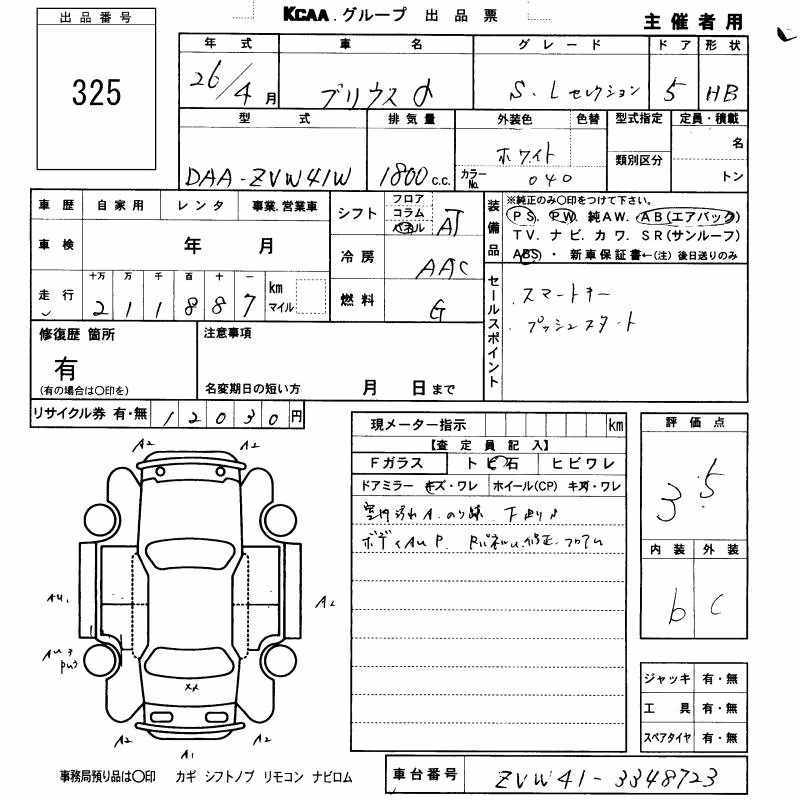 出品番号
325
KCAA.グループ 出品票
主催者用
年式 車名 グレード ドア 形状
26/4月 プリウスα S.Lセレクション 5 HB
型式 排気量 外装色 色替 型式指定 定員・積載
DAA-ZVW41W 1800 c.c. ホワイト カラーNo. 040 類別区分 名 トン
車歴 自家用 レンタ 事業.営業車
車検 年 月
走行 十万 万 千 百 十 一
2 1 1 8 8 7 km マイル
シフト フロア コラム パネル AT
冷房 AAC
燃料 G
装備品
※純正のみ○印をつけて下さい。
PS. PW. 純AW. AB(エアバック)
TV. ナビ. カワ. SR(サンルーフ)
ABS・新車保証書←(注)後日送りのみ
セールスポイント
.スマートキー
.プッシュスタート
修復歴 箇所
有
(有の場合は○印を)
注意事項
名変期日の短い方 月 日まで
リサイクル券 有・無 12030円
現メーター指示 km
【査定員記入】
Fガラス トビ石 ヒビワレ
ドアミラー キズ・ワレ ホイール(CP) キズ・ワレ
評価点
3.5
内装 外装
b C
A2 A2
AU1 A2
AU3
PU3
XX
A2 A1 A2
ジャッキ 有・無
工具 有・無
スペアタイヤ 有・無
事務局預り品は○印 カギ シフトノブ リモコン ナビロム
車台番号 ZVW41-3348723